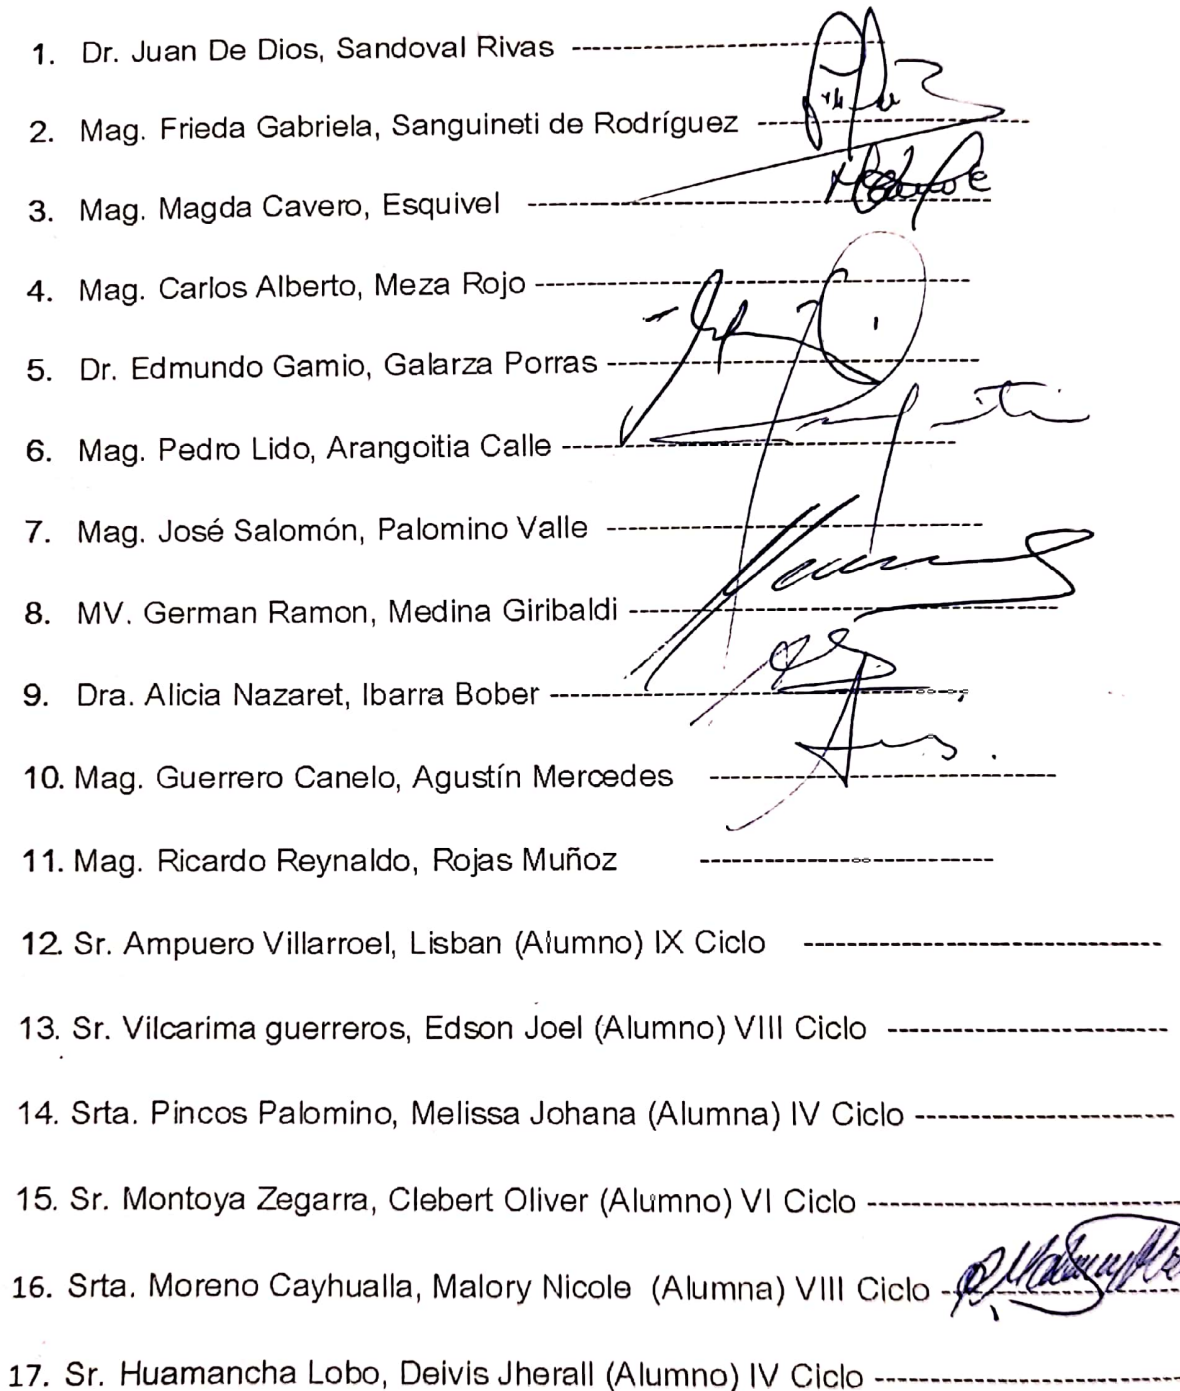 1. Dr. Juan De Dios, Sandoval Rivas ------------------------------
2. Mag. Frieda Gabriela, Sanguineti de Rodríguez ------------------------------
3. Mag. Magda Cavero, Esquivel ------------------------------
4. Mag. Carlos Alberto, Meza Rojo ------------------------------
5. Dr. Edmundo Gamio, Galarza Porras ------------------------------
6. Mag. Pedro Lido, Arangoitia Calle ------------------------------
7. Mag. José Salomón, Palomino Valle ------------------------------
8. MV. German Ramon, Medina Giribaldi ------------------------------
9. Dra. Alicia Nazaret, Ibarra Bober ------------------------------
10. Mag. Guerrero Canelo, Agustín Mercedes ------------------------------
11. Mag. Ricardo Reynaldo, Rojas Muñoz -------------------------
12. Sr. Ampuero Villarroel, Lisban (Alumno) IX Ciclo ------------------------------
13. Sr. Vilcarima guerreros, Edson Joel (Alumno) VIII Ciclo -----------------------
14. Srta. Pincos Palomino, Melissa Johana (Alumna) IV Ciclo ----------------------
15. Sr. Montoya Zegarra, Clebert Oliver (Alumno) VI Ciclo --------------------------
16. Srta. Moreno Cayhualla, Malory Nicole (Alumna) VIII Ciclo --------------------
17. Sr. Huamancha Lobo, Deivis Jherall (Alumno) IV Ciclo --------------------------